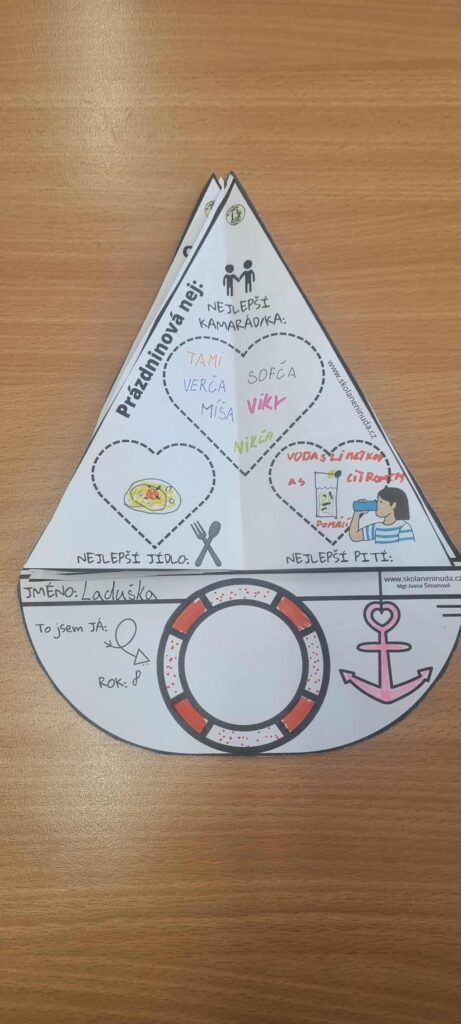 Prázdninová nej:
NEJLEPŠÍ
KAMARÁD/KA:
TAMI
SOFČA
VERČA
MÍŠA
VIKY
NIKČA
www.skolaneninuda.cz
VODA S LIMETKOU
A S CITRONEM
DOMÁCÍ
NEJLEPŠÍ JÍDLO:
NEJLEPŠÍ PITÍ:
www.skolaneninuda.cz
Mgr.Ivana Šimanová
JMÉNO: Laduška
To jsem JÁ:
ROK: 8